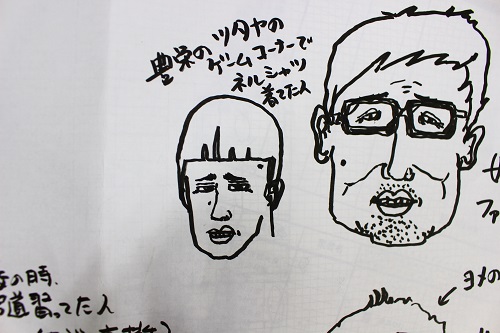 豊栄のツタヤの
ゲームコーナーで
ネルシャツ
着てた人
の時、
道習ってた人
ファ
ヨメの